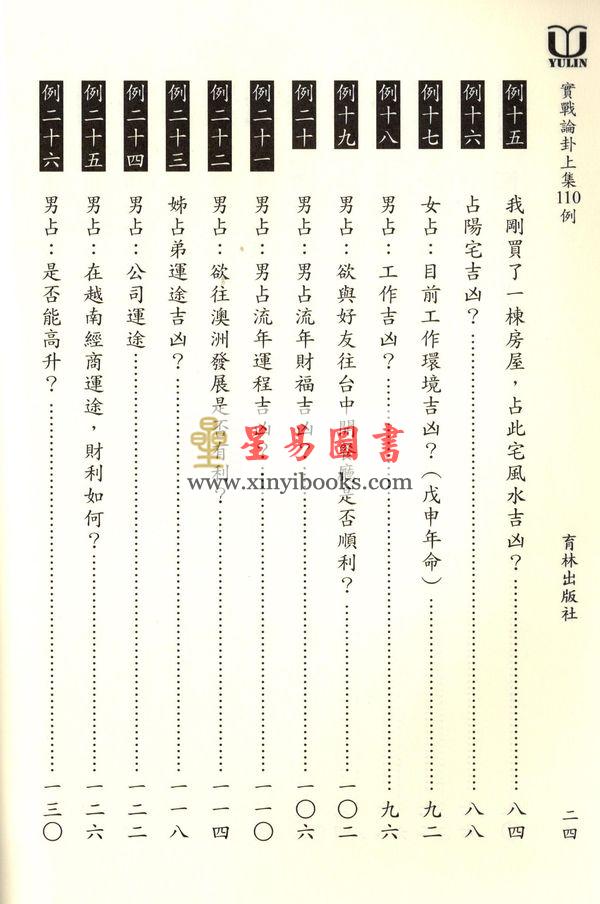 YULIN
實戰論卦上集110例
育林出版社
二四
例十五 我剛買了一棟房屋，占此宅風水吉凶？……八四
例十六 占陽宅吉凶？……八八
例十七 女占：目前工作環境吉凶？（戊申年命）……九二
例十八 男占：工作吉凶？……九六
例十九 男占：欲與好友往台中開餐廳是否順利？……一〇二
例二十 男占：男占流年財福吉凶？……一〇六
例二十一 男占：男占流年運程吉凶？……一一〇
例二十二 男占：欲往澳洲發展是否有利？……一一四
例二十三 姊占弟運途吉凶？……一一八
例二十四 男占：公司運途……一二二
例二十五 男占：在越南經商運途，財利如何？……一二六
例二十六 男占：是否能高升？……一三〇
星易圖書
www.xinyibooks.com